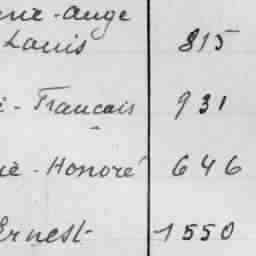 -ange
Louis 815
- Francois 931
- Honoré 646
Ernest 1550